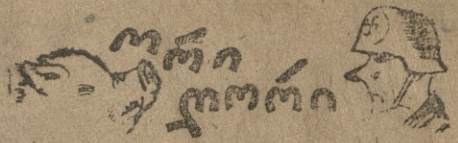 ორი
ღორი